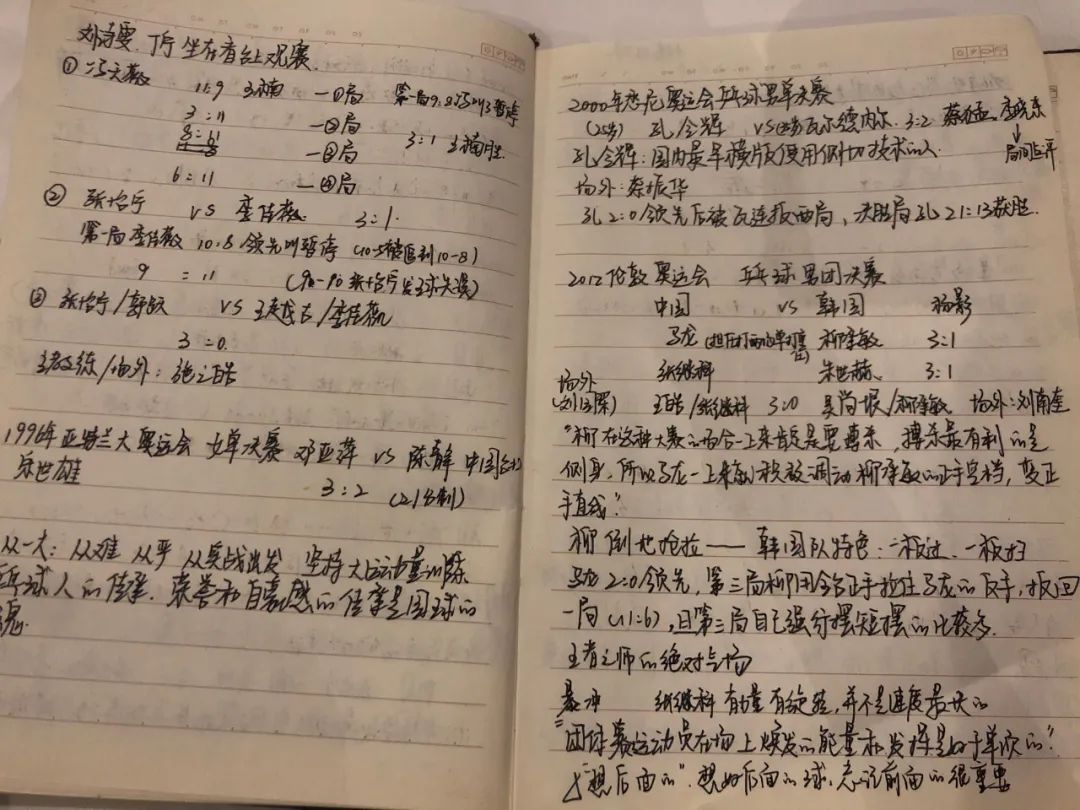 刘诗雯、丁宁坐在看台上观赛.
① 冯天薇 11:9 王楠 一①局 第一局9:8冯叫了暂停
3:11 一②局
一③局 3:1 王楠胜.
6:11 一④局
② 张怡宁 vs 李佳薇 3:1.
第一局李佳薇 10:8 领先叫暂停 (10-5被追到10-8)
9 :11 (9-10 张怡宁发球失误)
③ 张怡宁/郭跃 vs 王越古/李佳薇
3:0.
主教练/场外: 施之皓
1996年亚特兰大奥运会 女单决赛 邓亚萍 vs 陈静 中国台北
宋世雄 3:2 (21分制)
从一大: 从难 从严 从实战出发 坚持大运动量训练
乒球人的传承. 荣誉和自豪感的传承是国球的
魂.
2000年悉尼奥运会乒乓球男单决赛
(25岁) 孔令辉 vs 瓦尔德内尔. 3:2 蔡猛、李晓东
孔令辉: 国内最早横版使用侧切技术的人. 局间在评
场外: 蔡振华
孔2:0领先后被瓦连扳两局, 决胜局孔21:13获胜.
2012伦敦奥运会 乒乓球男团决赛
中国 vs 韩国 杨影
马龙 柳承敏 3:1
张继科 朱世赫 3:1
场外
(刘国梁) 王皓/张继科 3:0 吴尚垠/柳承敏 场外:刘南奎
"柳在这种大赛的场合一上来肯定是要搏杀, 搏杀最有利的是
侧身, 所以马龙一上来就积极调动柳承敏的正手空档, 变正
手直线".
柳倒地抢拉——韩国队特色: 二板过、一板扫
马龙2:0领先, 第三局柳用全台正手拉住马龙的反手, 扳回
一局(11:6), 且第三局自己强行摆短摆的比较多.
王者之师的绝对气场
张继科 有力量有旋转, 并不是速度最快的
"团体赛运动员在场上焕发的能量和发挥是好于单项的".
"想后面的". 想好后面的球, 忘记前面的很重要